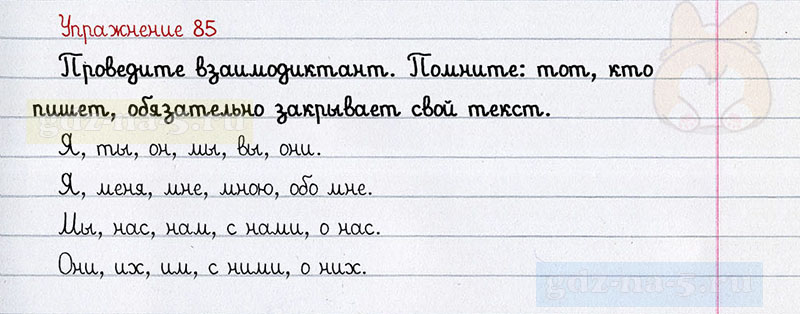 Упражнение 85
Проведите взаимодиктант. Помните: тот, кто
пишет, обязательно закрывает свой текст.
gdz-na-5.ru
Я, ты, он, мы, вы, они.
Я, меня, мне, мною, обо мне.
Мы, нас, нам, с нами, о нас.
Они, их, им, с ними, о них.
gdz-na-5.ru